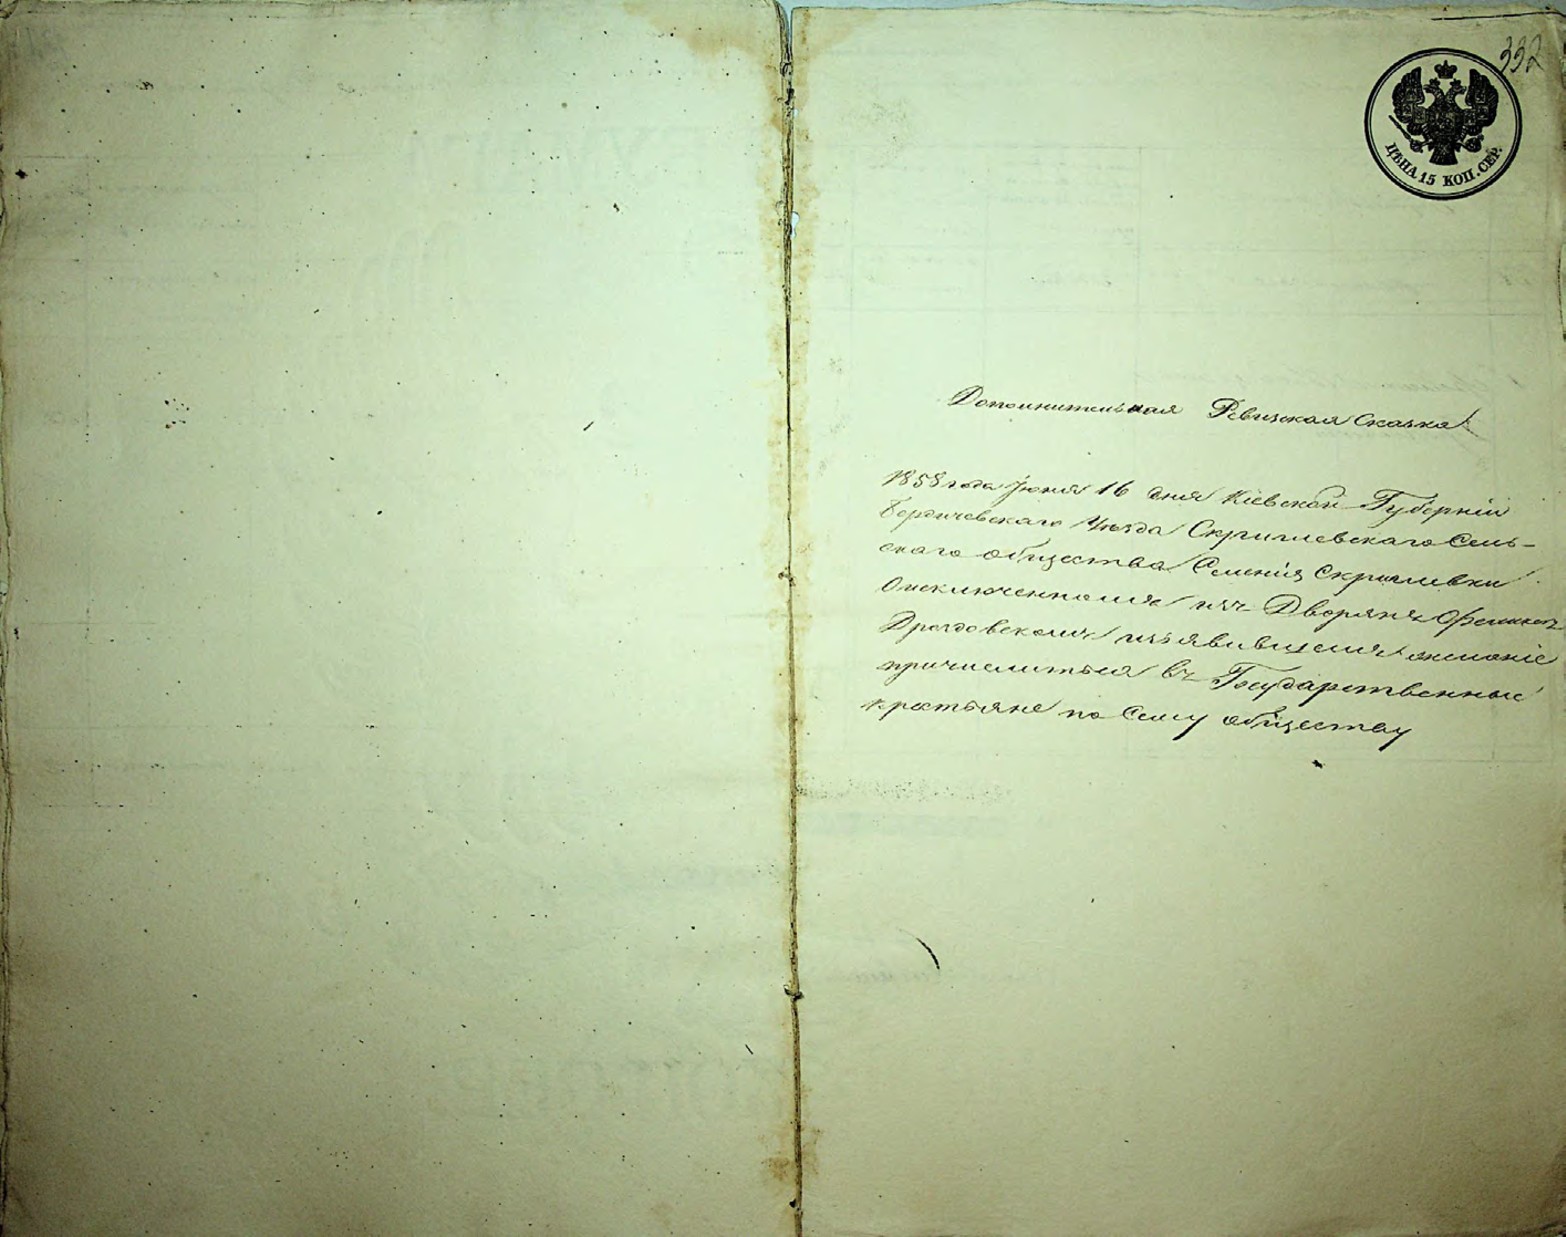 332
ЦѢНА 15 КОП. СЕР.
Дополнительная Ревизская Сказка
1858 года Іюня 16 дня Кіевской Губерніи
Бердичевскаго Уѣзда Скригилевскаго Сель-
скаго общества Селенія
О исключенномъ изъ Дворянъ
Дроздовскомъ изъявившемъ желаніе
причислиться въ Государственные
крестьяне по Сему обществу